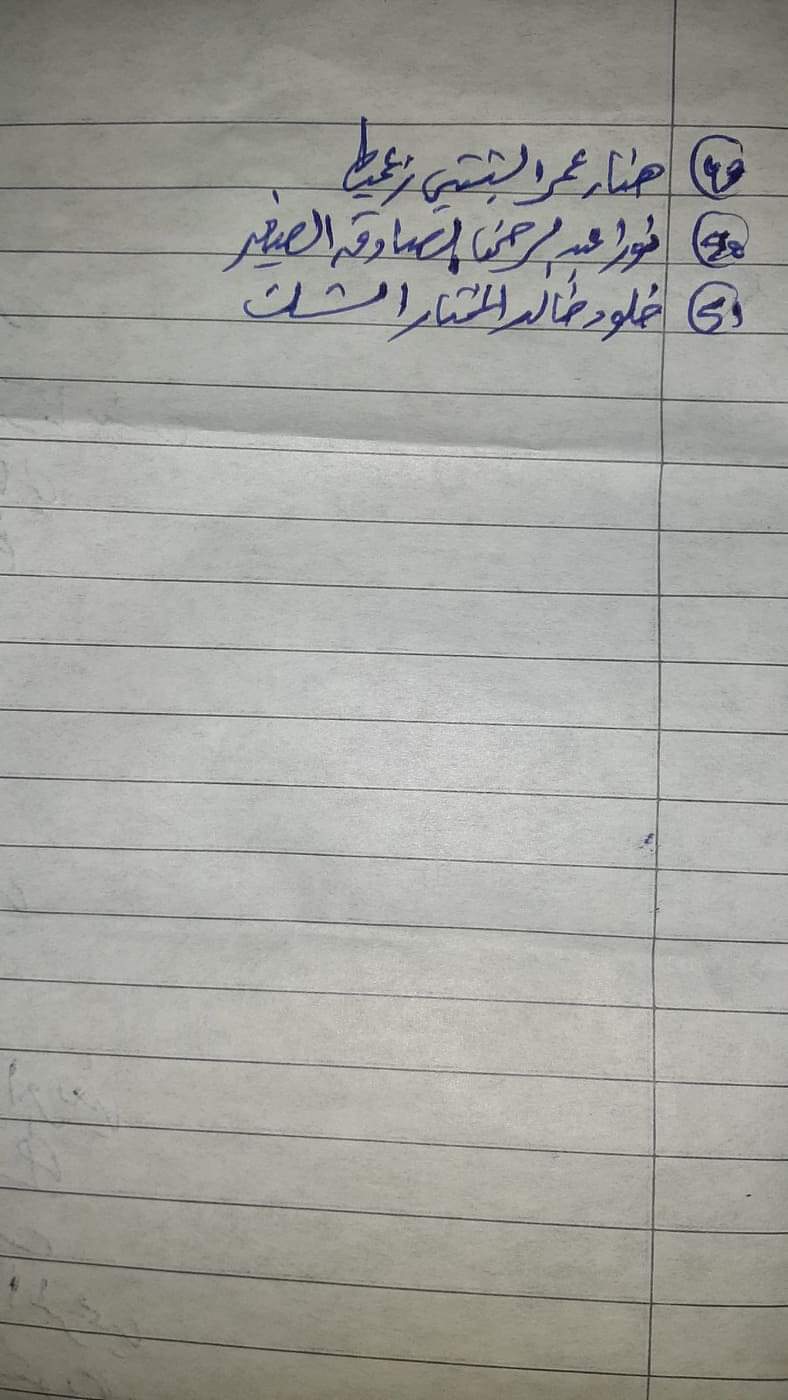 49 هناء عمر البشتي زعميط
50 نورا عبد الرحمن الصادق الصغير
51 خلود خالد المختار الشلت